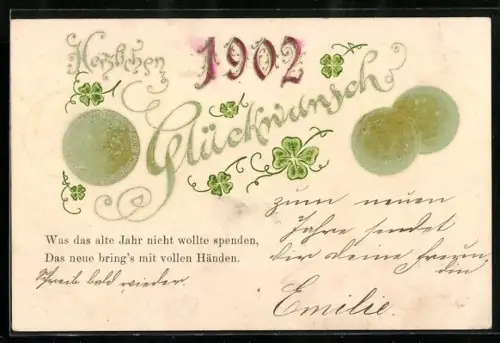 Herzlichen
1902
Glückwunsch
Was das alte Jahr nicht wollte spenden,
Das neue bring's mit vollen Händen.
Schreib bald wieder.
zum neuen
Jahre sendet
dir deine Freun-
din
Emilie.